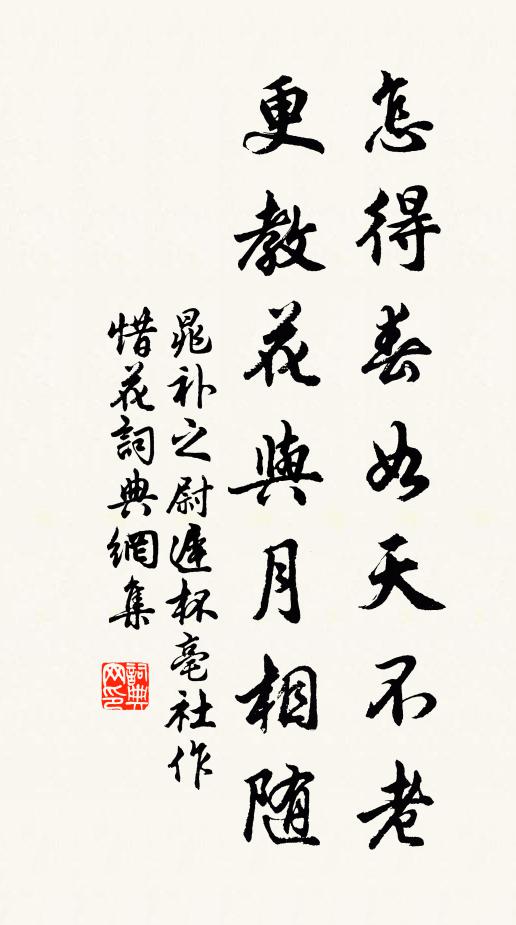 怎得春如天不老
更教花與月相隨
晁补之尉遲杯亳社作
惜花詞典網集
詞典网印